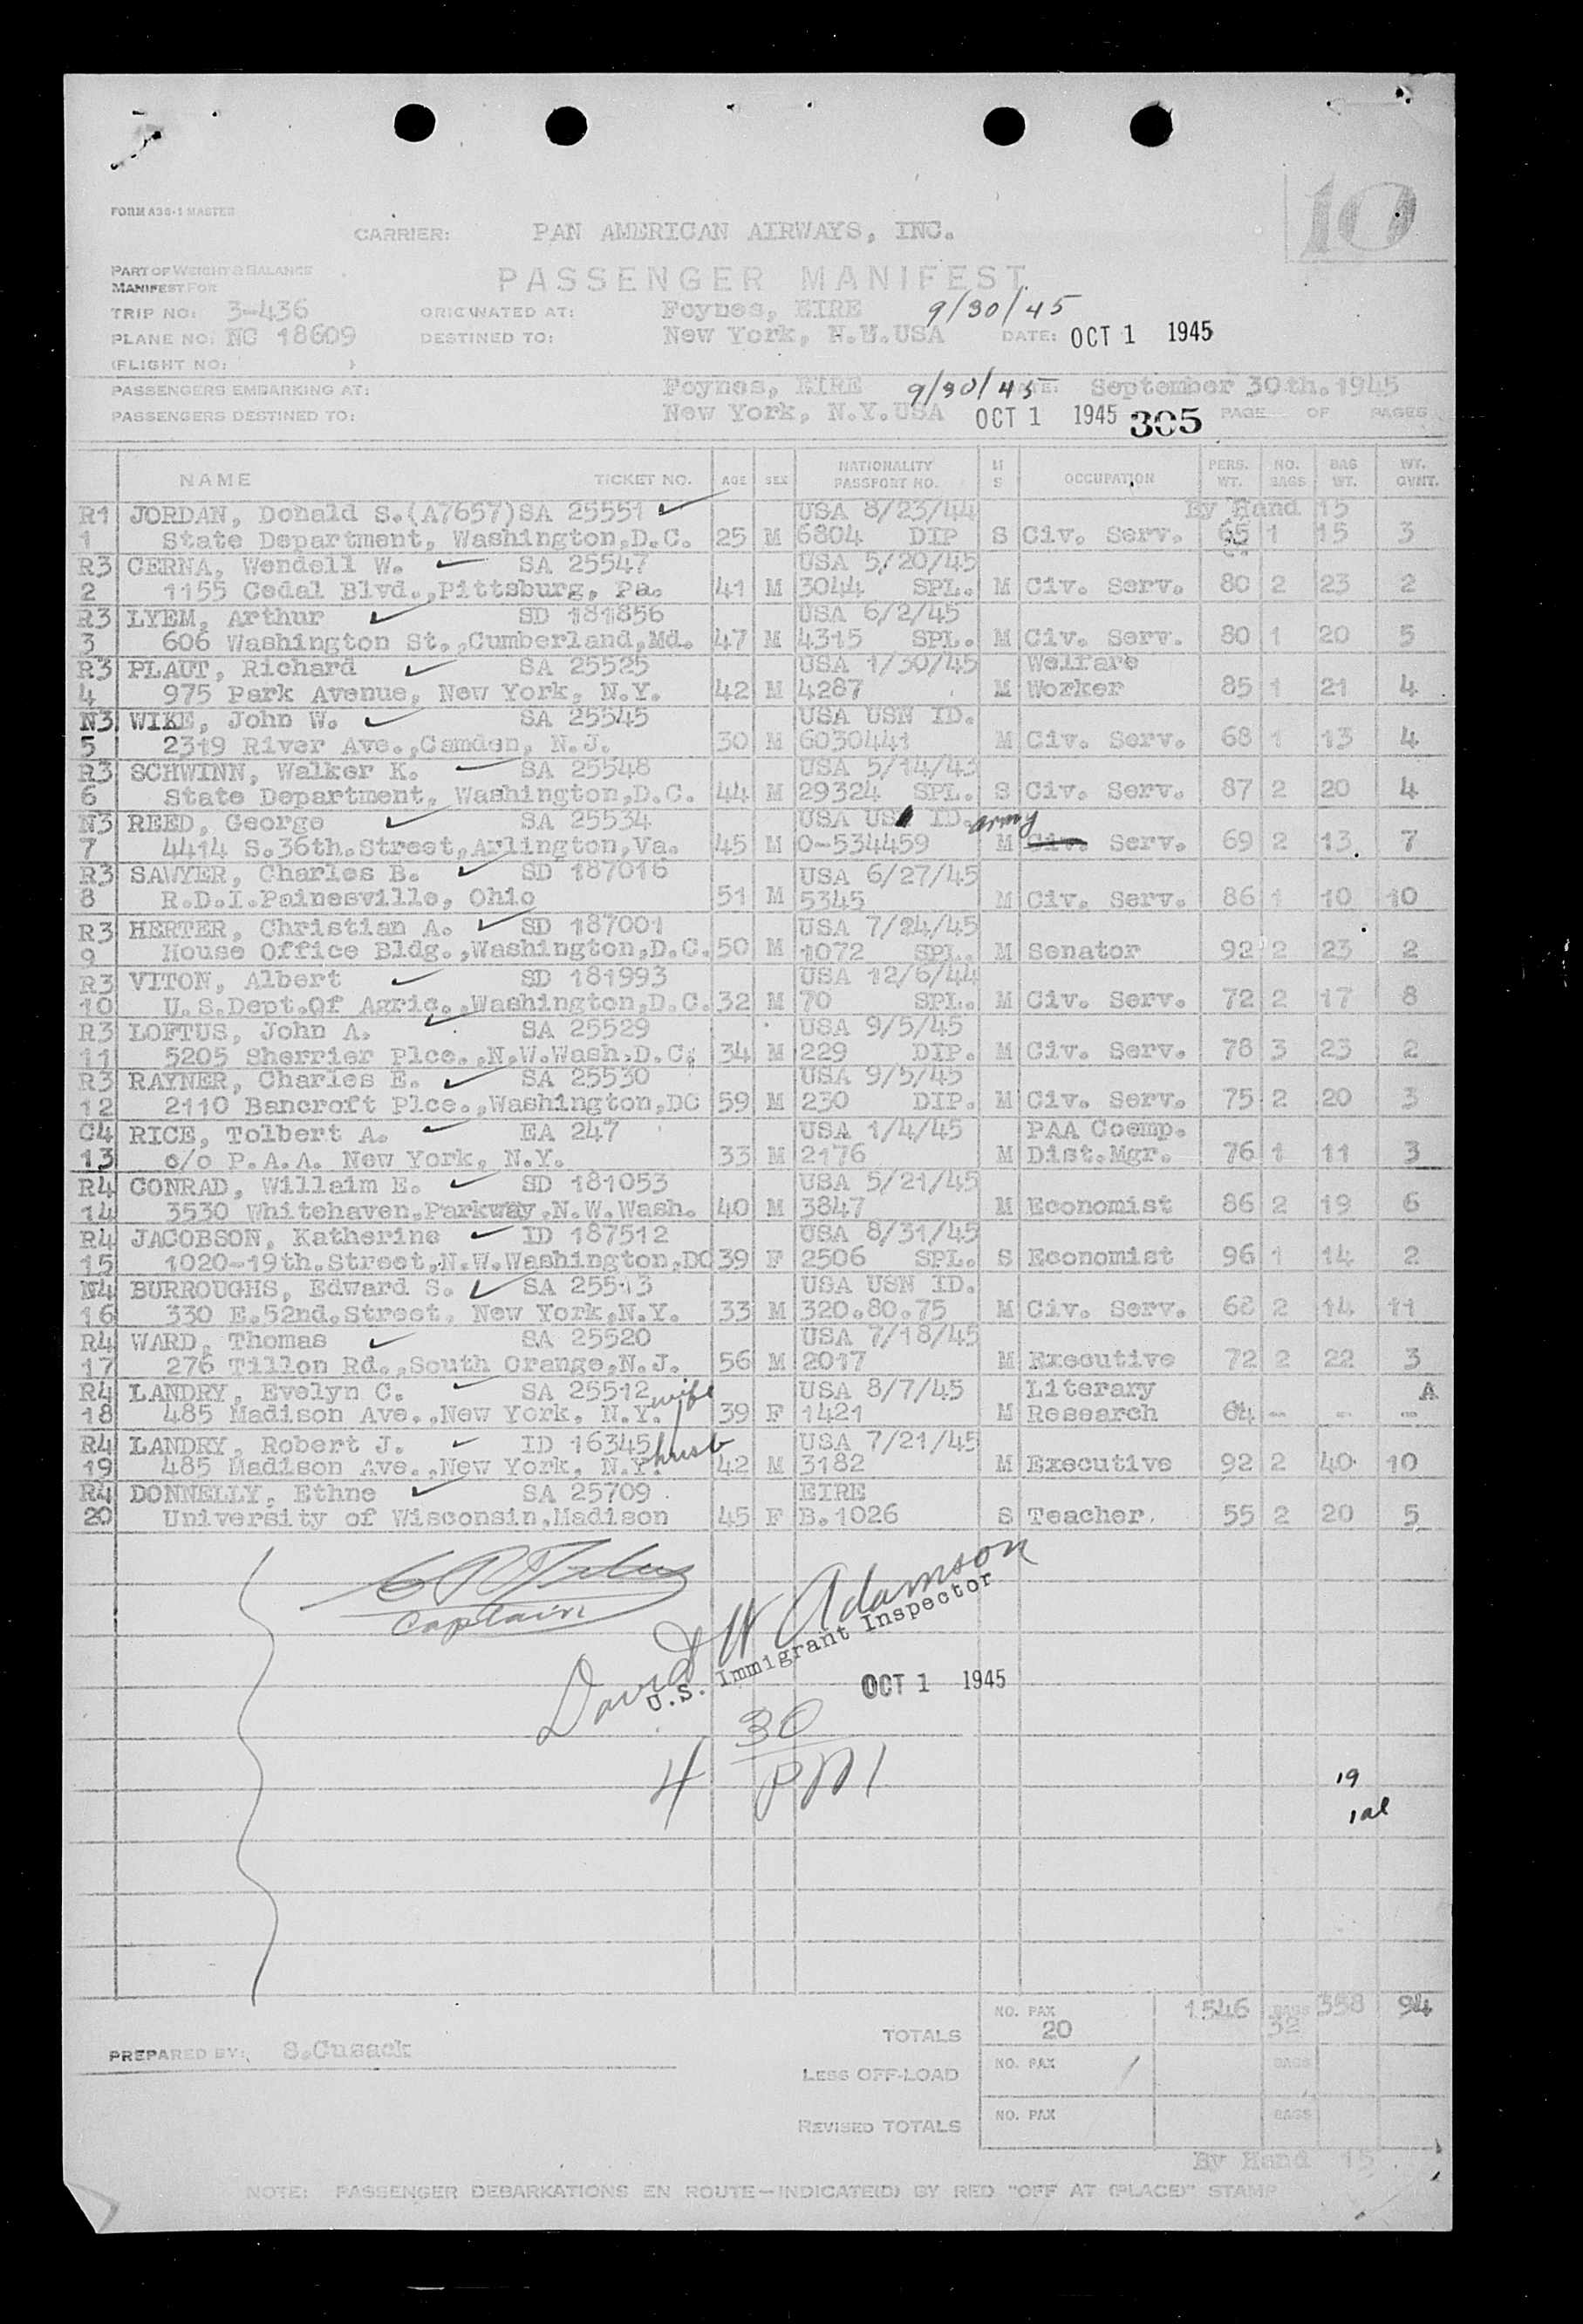 10
FORM A36-1 MASTER
CARRIER: PAN AMERICAN AIRWAYS, INC.
PART OF WEIGHT & BALANCE
PASSENGER MANIFEST
MANIFEST FOR
TRIP NO: 3-436 ORIGINATED AT: Foynes, EIRE 9/30/45
PLANE NO: NC 18609 DESTINED TO: New York, N.Y.USA DATE: OCT 1 1945
(FLIGHT NO: )
PASSENGERS EMBARKING AT: Foynes, EIRE 9/30/45 DATE: September 30th.1945
PASSENGERS DESTINED TO: New York, N.Y.USA OCT 1 1945 305 PAGE OF PAGES
NAME TICKET NO. AGE SEX NATIONALITY PASSPORT NO. M S OCCUPATION PERS. WT. NO. BAGS BAG WT. WT. OVHT.
R1 JORDAN, Donald S.(A7657)SA 25551 ✓ USA 8/23/44 By Hand 15
1 State Department, Washington,D.C. 25 M 6804 DIP S Civ. Serv. 65 1 15 3
R3 CERNA, Wendell W. ✓ SA 25547 USA 5/20/45
2 1155 Cedal Blvd.,Pittsburg, Pa. 41 M 3044 SPL. M Civ. Serv. 80 2 23 2
R3 LYEM, Arthur ✓ SD 181856 USA 6/2/45
3 606 Washington St.,Cumberland,Md. 47 M 4315 SPL. M Civ. Serv. 80 1 20 5
R3 PLAUT, Richard ✓ SA 25525 USA 1/30/45 Welfare
4 975 Park Avenue, New York, N.Y. 42 M 4287 M Worker 85 1 21 4
N3 WIKE, John W. ✓ SA 25545 USA USN ID.
5 2319 River Ave.,Camden, N.J. 30 M 6030441 M Civ. Serv. 68 1 13 4
R3 SCHWINN, Walker K. ✓ SA 25548 USA 5/14/43
6 State Department, Washington,D.C. 44 M 29324 SPL. S Civ. Serv. 87 2 20 4
N3 REED, George ✓ SA 25534 USA US ID. Army
7 4414 S.36th.Street,Arlington,Va. 45 M O-534459 M Civ. Serv. 69 2 13 7
R3 SAWYER, Charles B. ✓ SD 187016 USA 6/27/45
8 R.D.I.Painesville, Ohio 51 M 5345 M Civ. Serv. 86 1 10 10
R3 HERTER, Christian A. ✓ SD 187001 USA 7/24/45
9 House Office Bldg.,Washington,D.C. 50 M 1072 SPL. M Senator 92 2 23 2
R3 VITON, Albert ✓ SD 181993 USA 12/6/44
10 U.S.Dept.Of Agric.,Washington,D.C. 32 M 70 SPL. M Civ. Serv. 72 2 17 8
R3 LOFTUS, John A. ✓ SA 25529 USA 9/5/45
11 5205 Sherrier Plce.,N.W.Wash.D.C. 34 M 229 DIP. M Civ. Serv. 78 3 23 2
R3 RAYNER, Charles E. ✓ SA 25530 USA 9/5/45
12 2110 Bancroft Plce.,Washington,DC 59 M 230 DIP. M Civ. Serv. 75 2 20 3
C4 RICE, Tolbert A. ✓ EA 247 USA 1/4/45 PAA Coemp.
13 c/o P.A.A. New York, N.Y. 33 M 2176 M Dist.Mgr. 76 1 11 3
R4 CONRAD, Willaim E. ✓ SD 181053 USA 5/21/45
14 3530 Whitehaven,Parkway,N.W.Wash. 40 M 3847 M Economist 86 2 19 6
R4 JACOBSON, Katherine ✓ ID 187512 USA 8/31/45
15 1020-19th.Street,N.W.Washington,DC 39 F 2506 SPL. S Economist 96 1 14 2
N4 BURROUGHS, Edward S. ✓ SA 25513 USA USN ID.
16 330 E.52nd.Street, New York,N.Y. 33 M 320.80.75 M Civ. Serv. 68 2 14 11
R4 WARD, Thomas ✓ SA 25520 USA 7/18/45
17 276 Tillon Rd.,South Orange,N.J. 56 M 2017 M Executive 72 2 22 3
R4 LANDRY, Evelyn C. ✓ SA 25512 wife USA 8/7/45 Literary A
18 485 Madison Ave.,New York, N.Y. 39 F 1421 M Research 64 - - -
R4 LANDRY, Robert J. ✓ ID 16345 husb USA 7/21/45
19 485 Madison Ave.,New York, N.Y. 42 M 3182 M Executive 92 2 40 10
R4 DONNELLY, Ethne ✓ SA 25709 EIRE
20 University of Wisconsin,Madison 45 F B.1026 S Teacher 55 2 20 5
Captain
David W Adamson
U.S. Immigrant Inspector
OCT 1 1945
4 30 PM
19
1 al
TOTALS NO. PAX 20 1546 BAGS 32 358 94
PREPARED BY: S.Cusack
LESS OFF-LOAD NO. PAX BAGS
REVISED TOTALS NO. PAX BAGS
By Hand 15
NOTE: PASSENGER DEBARKATIONS EN ROUTE—INDICATE(D) BY RED "OFF AT (PLACE)" STAMP